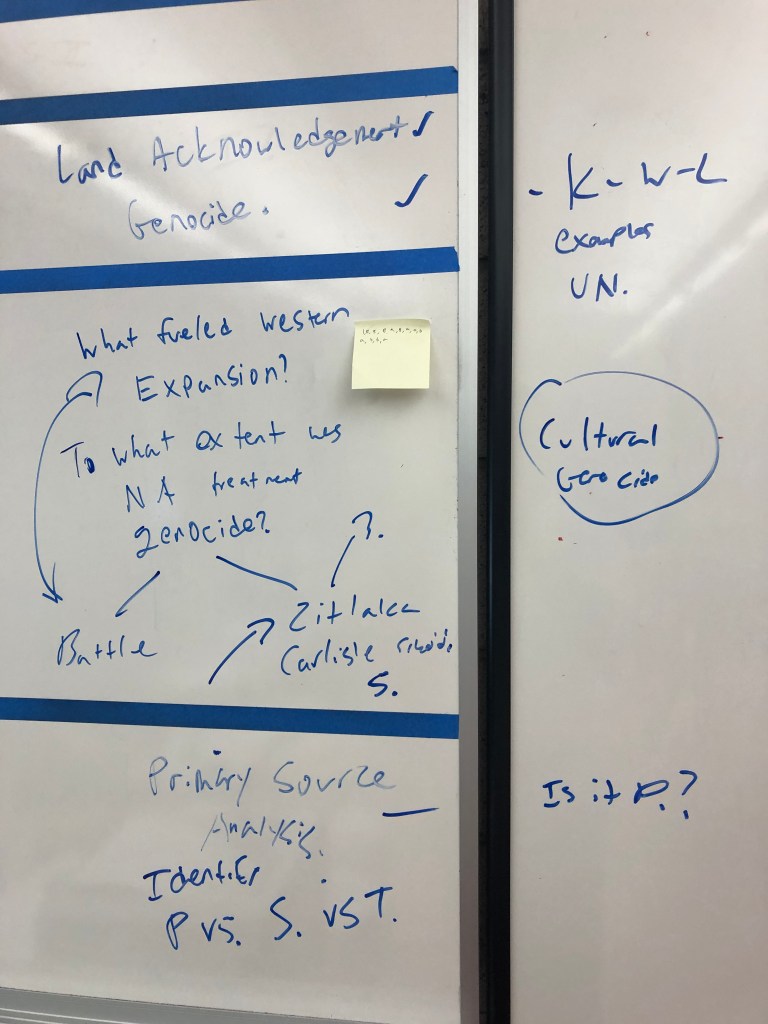 Land Acknowledgement ✓
Genocide. ✓
What fueled western
Expansion?
To what extent was
NA treatment
genocide?
?.
Battle
Zitlala
Carlisle
S.
Primary Source
Analysis.
Identifier
P vs. S. vs T.
- K-W-L
examples
UN.
Cultural
Genocide
Is it P.?